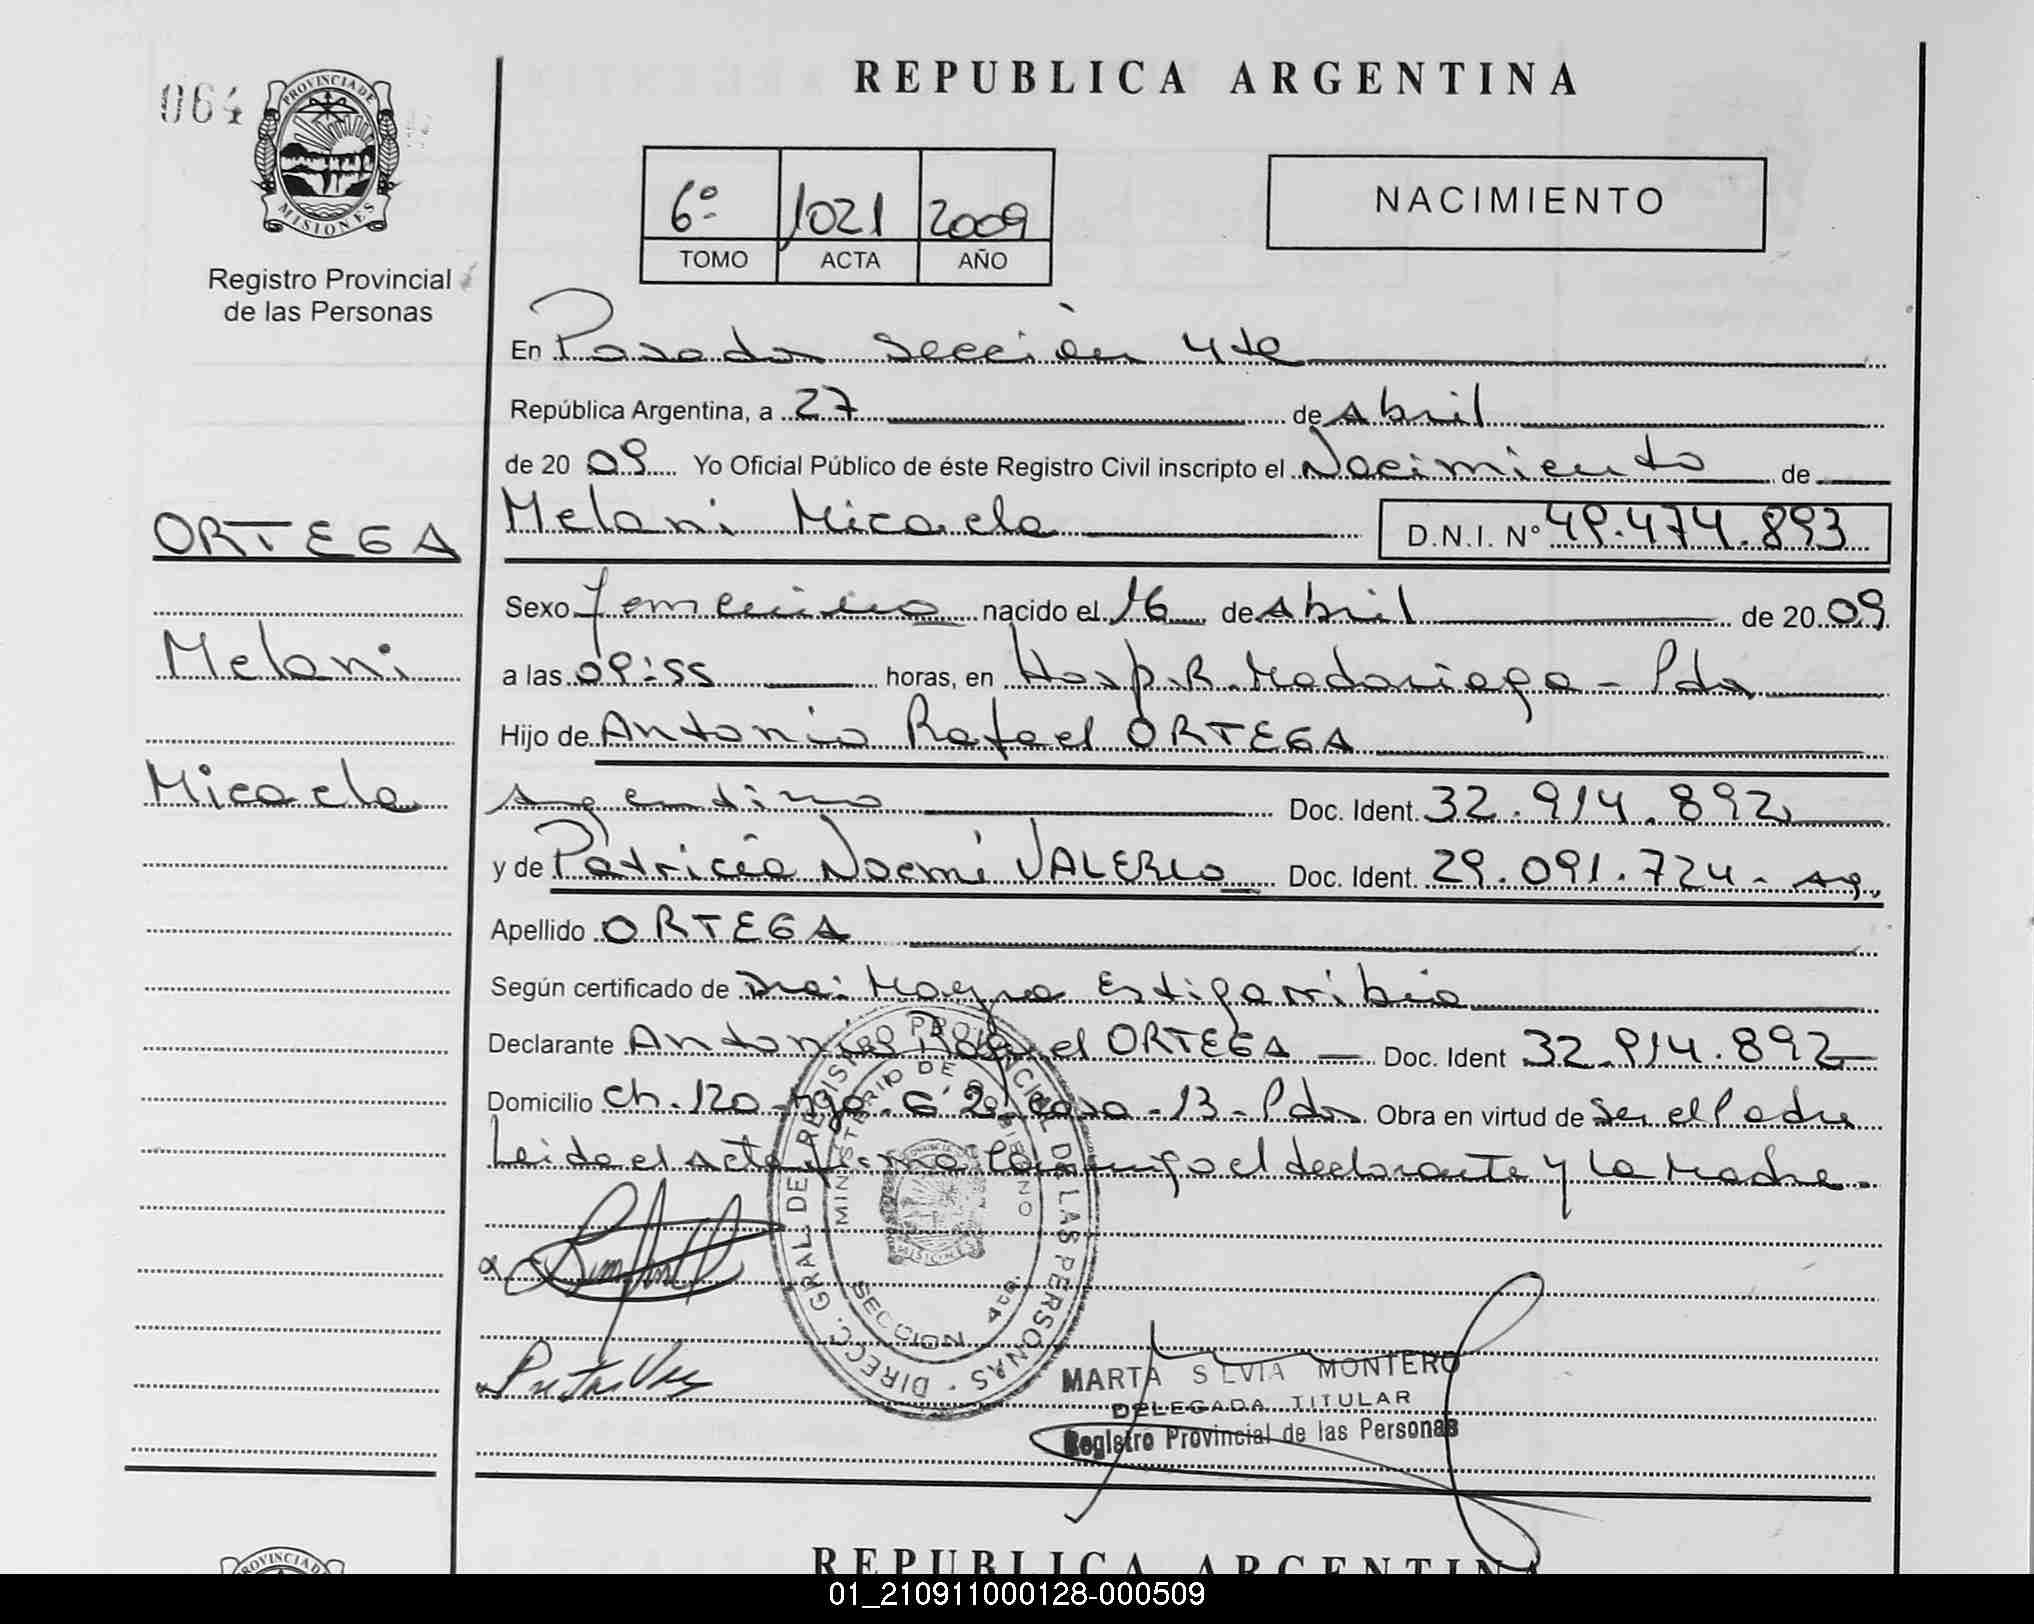 REPUBLICA ARGENTINA
064
PROVINCIA DE
MISIONES
Registro Provincial
de las Personas
6º 1021 2009
TOMO ACTA AÑO
NACIMIENTO
En Posadas Sección 4ta
República Argentina, a 27 de Abril
de 20 09 Yo Oficial Público de éste Registro Civil inscripto el Nacimiento de
ORTEGA
Melani
Micaela
Melani Micaela D.N.I. Nº 49.474.893
Sexo femenino nacido el 16 de Abril de 20 09
a las 09:55 horas, en Hosp. R. Madariaga - Pdas
Hijo de Antonio Rafael ORTEGA
Argentino Doc. Ident. 32.914.892
y de Patricia Noemí VALERIO Doc. Ident. 29.091.724 - Ag.
Apellido ORTEGA
Según certificado de Dra: Mayra Estigarribia
Declarante Antonio Rafael ORTEGA Doc. Ident 32.914.892
Domicilio Ch. 120 - casa - 13 - Pdas Obra en virtud de Ser el Padre
Leida el Acta firma conmigo el declarante y la Madre.
DIRECC. GRAL. DE REGISTRO PROVINCIAL DE LAS PERSONAS
MINISTERIO DE GOBIERNO
MISIONES
SECCION 4ta.
MARTA SILVIA MONTERO
DELEGADA TITULAR
Registro Provincial de las Personas
PROVINCIA D
REPUBLICA ARGENTINA
01_210911000128-000509